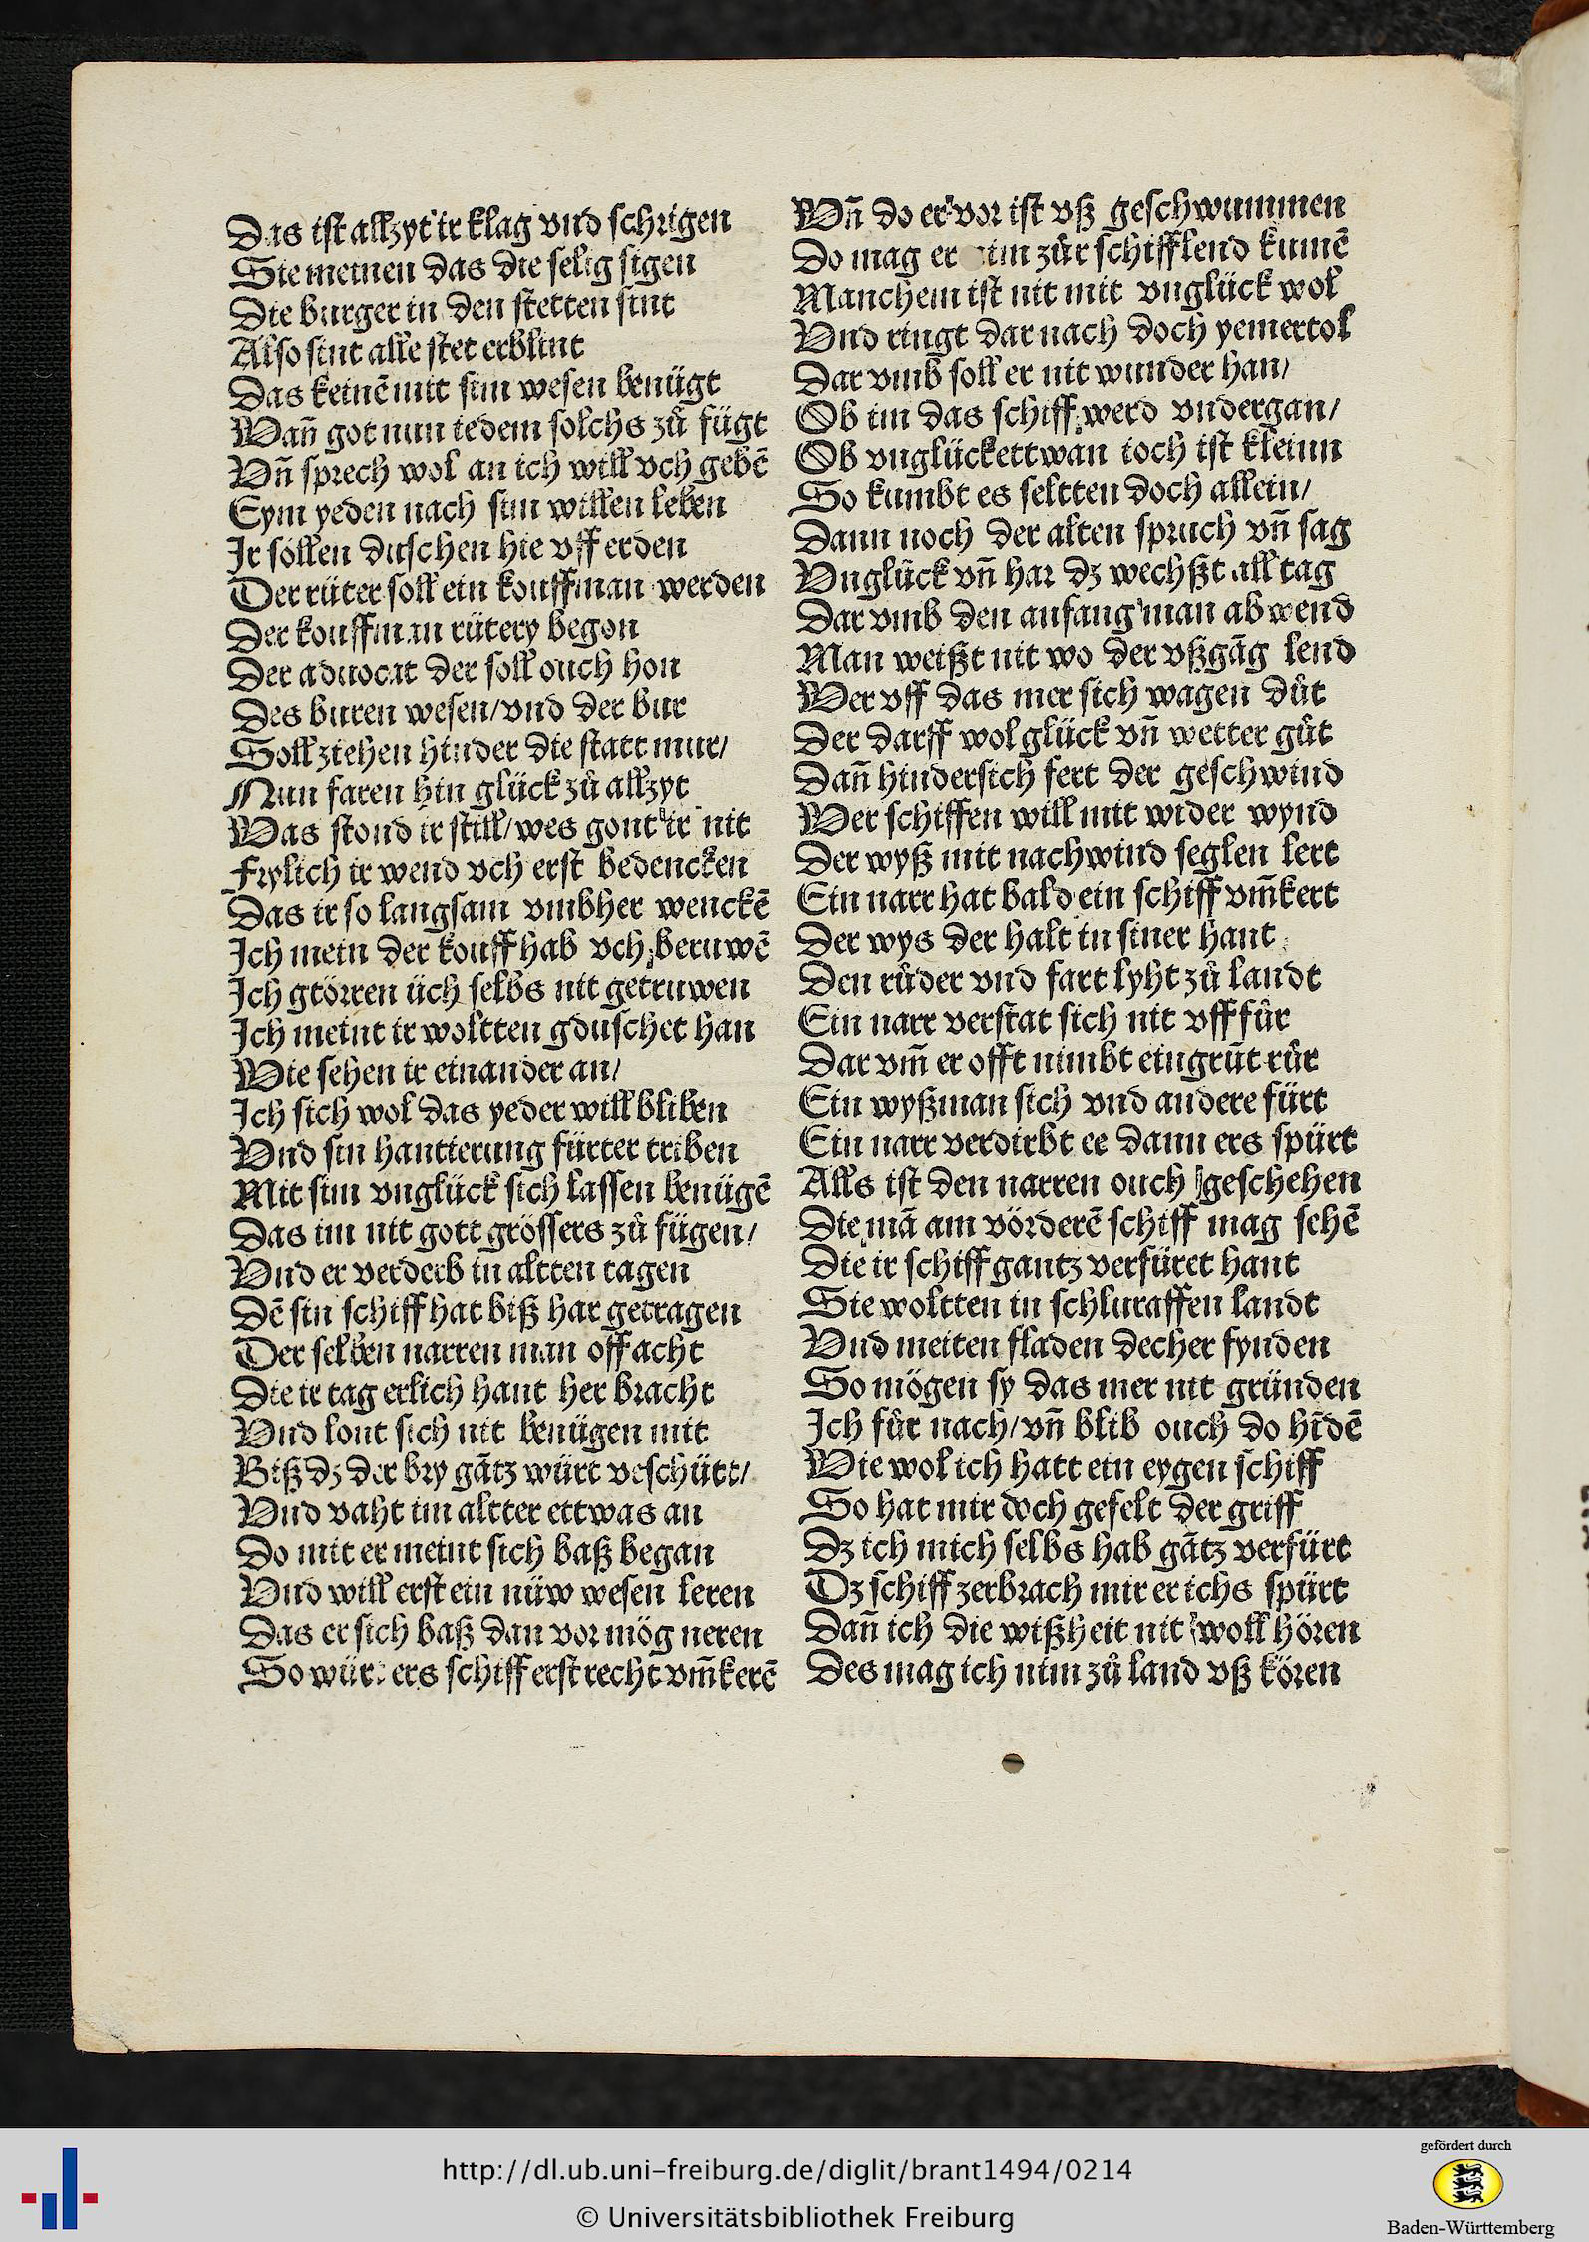 Das ist allzyt ir klag vnd schrigen
Sie meinen das die selig sigen
Die burger in den stetten sint
Also sint alle stet erblint
Das keinē mit sim wesen benügt
Wan̄ got nun iedem solchs zů fügt
Vn̄ sprech wol an ich will vch gebē
Eym yeden nach sim willen leben
Ir söllen duschen hie vff erden
Der rüter soll ein kouffman werden
Der kouffman rütery begon
Der aduocat der soll ouch hon
Des buren wesen/vnd der bur
Soll ziehen hinder die statt mur/
Nun faren hin glück zů allzyt
Was stond ir still/wes gont ir nit
Frylich ir wend vch erst bedencken
Das ir so langsam vmbher wenckē
Ich mein der kouff hab vch beruwē
Ich gtörren üch selbs nit getruwen
Ich meint ir woltten gduschet han
Wie sehen ir einander an/
Ich sich wol das yeder will bliben
Vnd sin hantierung fürter triben
Mit sim vnglück sich lassen benügē
Das im nit gott grössers zů fügen/
Vnd er verderb in altten tagen
Dē sin schiff hat biß har getragen
Der selben narren man off acht
Die ir tag erlich hant her bracht
Vnd lont sich nit benügen mit
Biß dz der bry gātz würt veschütt/
Vnd vaht im altter ettwas an
Do mit er meint sich baß began
Vnd will erst ein nüw wesen leren
Das er sich baß dan vor mög neren
So würt ers schiff erst recht vm̄kerē
Vn̄ do er vor ist vß geschwummen
Do mag er nim zůr schifflend kumē
Manchem ist nit mit vnglück wol
Vnd ringt dar nach doch yemertol
Dar vmb soll er nit wunder han/
Ob im das schiff werd vndergan/
Ob vnglück ettwan ioch ist kleinn
So kumbt es seltten doch allein/
Dann noch der alten spruch vn̄ sag
Vnglück vn̄ har dz wechßt all tag
Dar vmb den anfang man ab wend
Man weißt nit wo der vßgāg lend
Wer vff das mer sich wagen důt
Der darff wol glück vn̄ wetter gůt
Dan̄ hindersich fert der geschwind
Wer schiffen will mit wider wynd
Der wyß mit nachwind seglen lert
Ein narr hat bald ein schiff vm̄kert
Der wys der halt in siner hant
Den růder vnd fart lyht zů landt
Ein narr verstat sich nit vff fůr
Dar vm̄ er offt nimbt ein grūt růr
Ein wyßman sich vnd andere fürt
Ein narr verdirbt ee dann ers spürt
Alls ist den narren ouch geschehen
Die mā am vörderē schiff mag sehē
Die ir schiff gantz verfüret hant
Sie woltten in schluraffen landt
Vnd meiten fladen decher fynden
So mögen sy das mer nit gründen
Ich fůr nach/vn̄ blib ouch do hīdē
Wie wol ich hatt ein eygen schiff
So hat mir doch gefelt der griff
Dz ich mich selbs hab gātz verfürt
Dz schiff zerbrach mir er ichs spürt
Dan̄ ich die wißheit nit woll hören
Des mag ich nim zů land vß kören
http://dl.ub.uni-freiburg.de/diglit/brant1494/0214
© Universitätsbibliothek Freiburg
gefördert durch
Baden-Württemberg